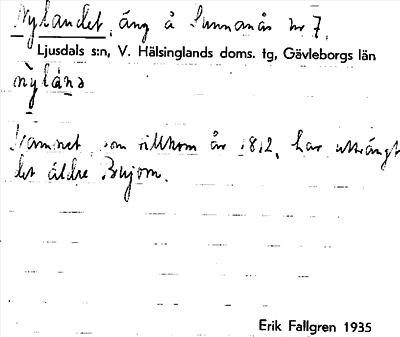 Nylandet, äng å Sunnanås nr 7.
Ljusdals s:n, V. Hälsinglands doms. tg, Gävleborgs län
nỳlánɔ
Namnet, som tillkom år 1812, har utträngt
det äldre
Erik Fallgren 1935